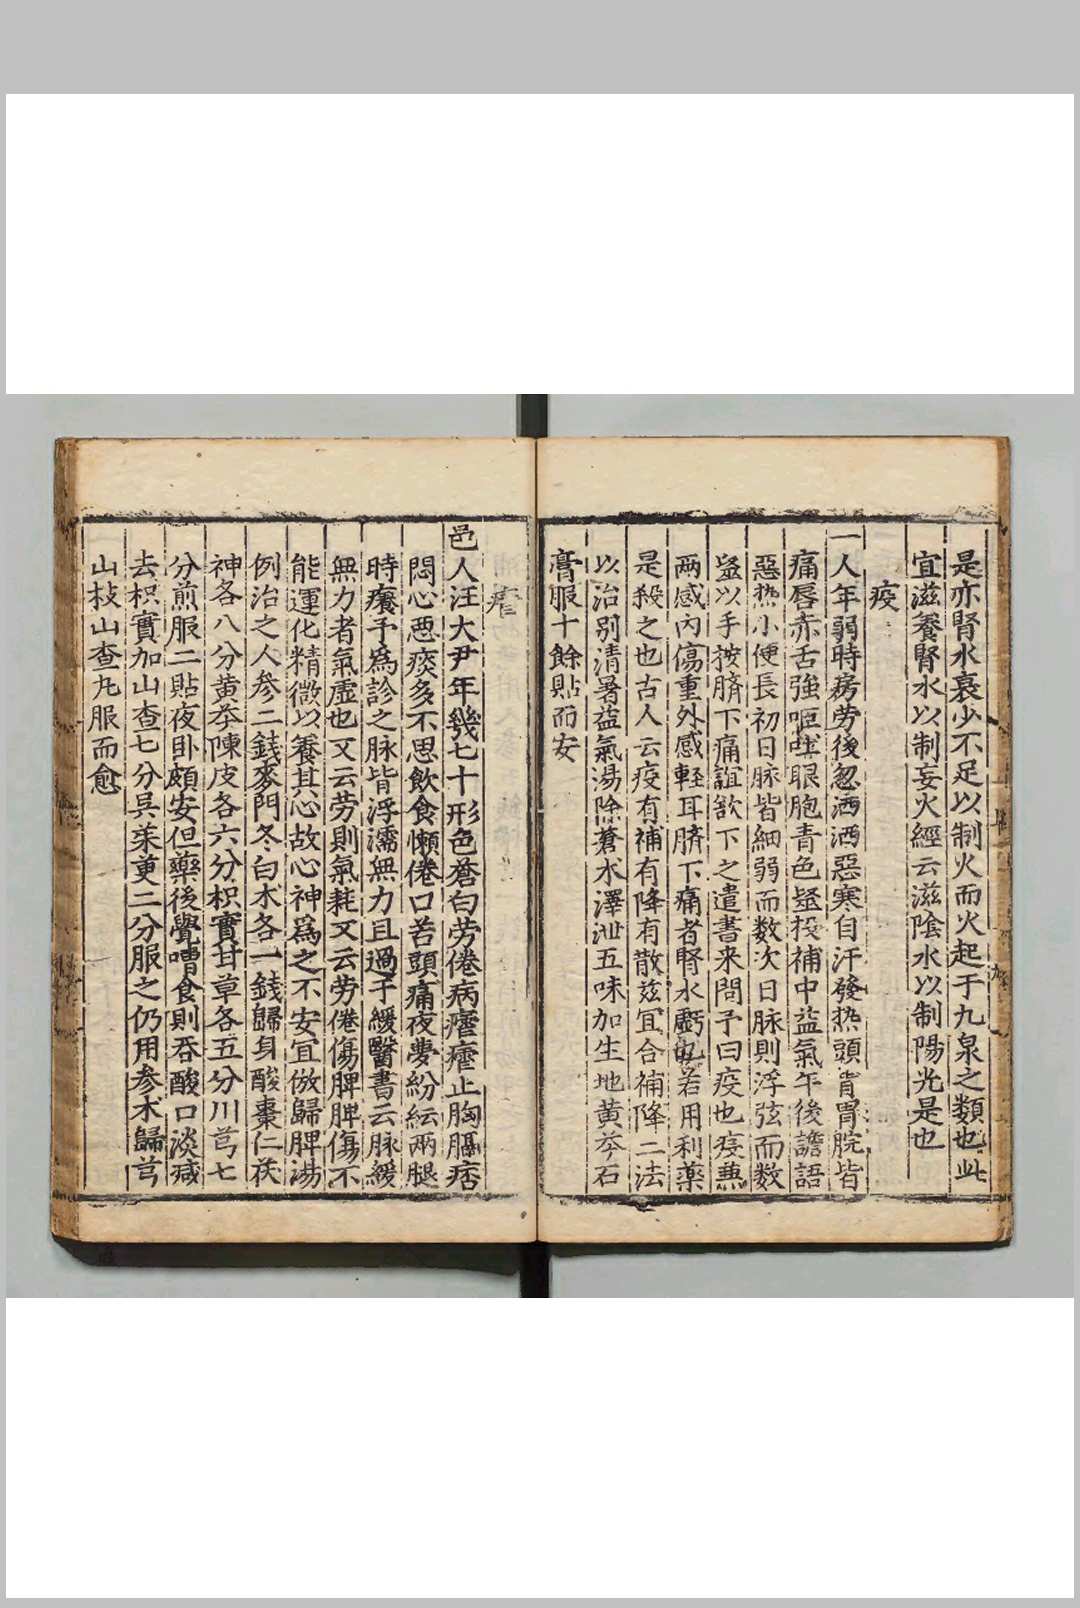 是亦腎水衰少不足以制火而火起于九泉之類也此
宜滋養腎水以制妄火經云滋陰水以制陽光是也
疫
一人年弱時房勞後忽洒洒惡寒自汗發熱頭背胃脘皆
痛唇赤舌強嘔吐眼胞青色毉投補中益氣午後譫語
惡热小便長初日脉皆細弱而数次日脉則浮弦而数
毉以手按臍下痛誼欲下之遣書来問予曰疫也疫兼
两感内傷重外感軽耳臍下痛者腎水虧也若用利藥
是殺之也古人云疫有補有降有散兹宜合補降二法
以治别清暑益氣湯除蒼术澤泄五味加生地黄芩石
膏服十餘貼而安
瘧
邑人汪大尹年幾七十形色蒼白勞倦病瘧瘧止胸膈痞
悶心惡痰多不思飲食懶倦口苦頭痛夜夢紛紜兩腿
時癢予爲診之脉皆浮濡無力且過于緩醫書云脉緩
無力者氣虛也又云劳則氣耗又云劳倦傷脾脾傷不
能運化精微以養其心故心神爲之不安宜倣歸脾湯
例治之人参二錢麥門冬白术各一錢歸身酸棗仁茯
神各八分黄芩陳皮各六分枳實甘草各五分川芎七
分煎服二貼夜卧頗安但藥後覺嘈食則吞酸口淡减
去枳實加山查七分吳茱萸二分服之仍用参术歸芎
山枝山查丸服而愈